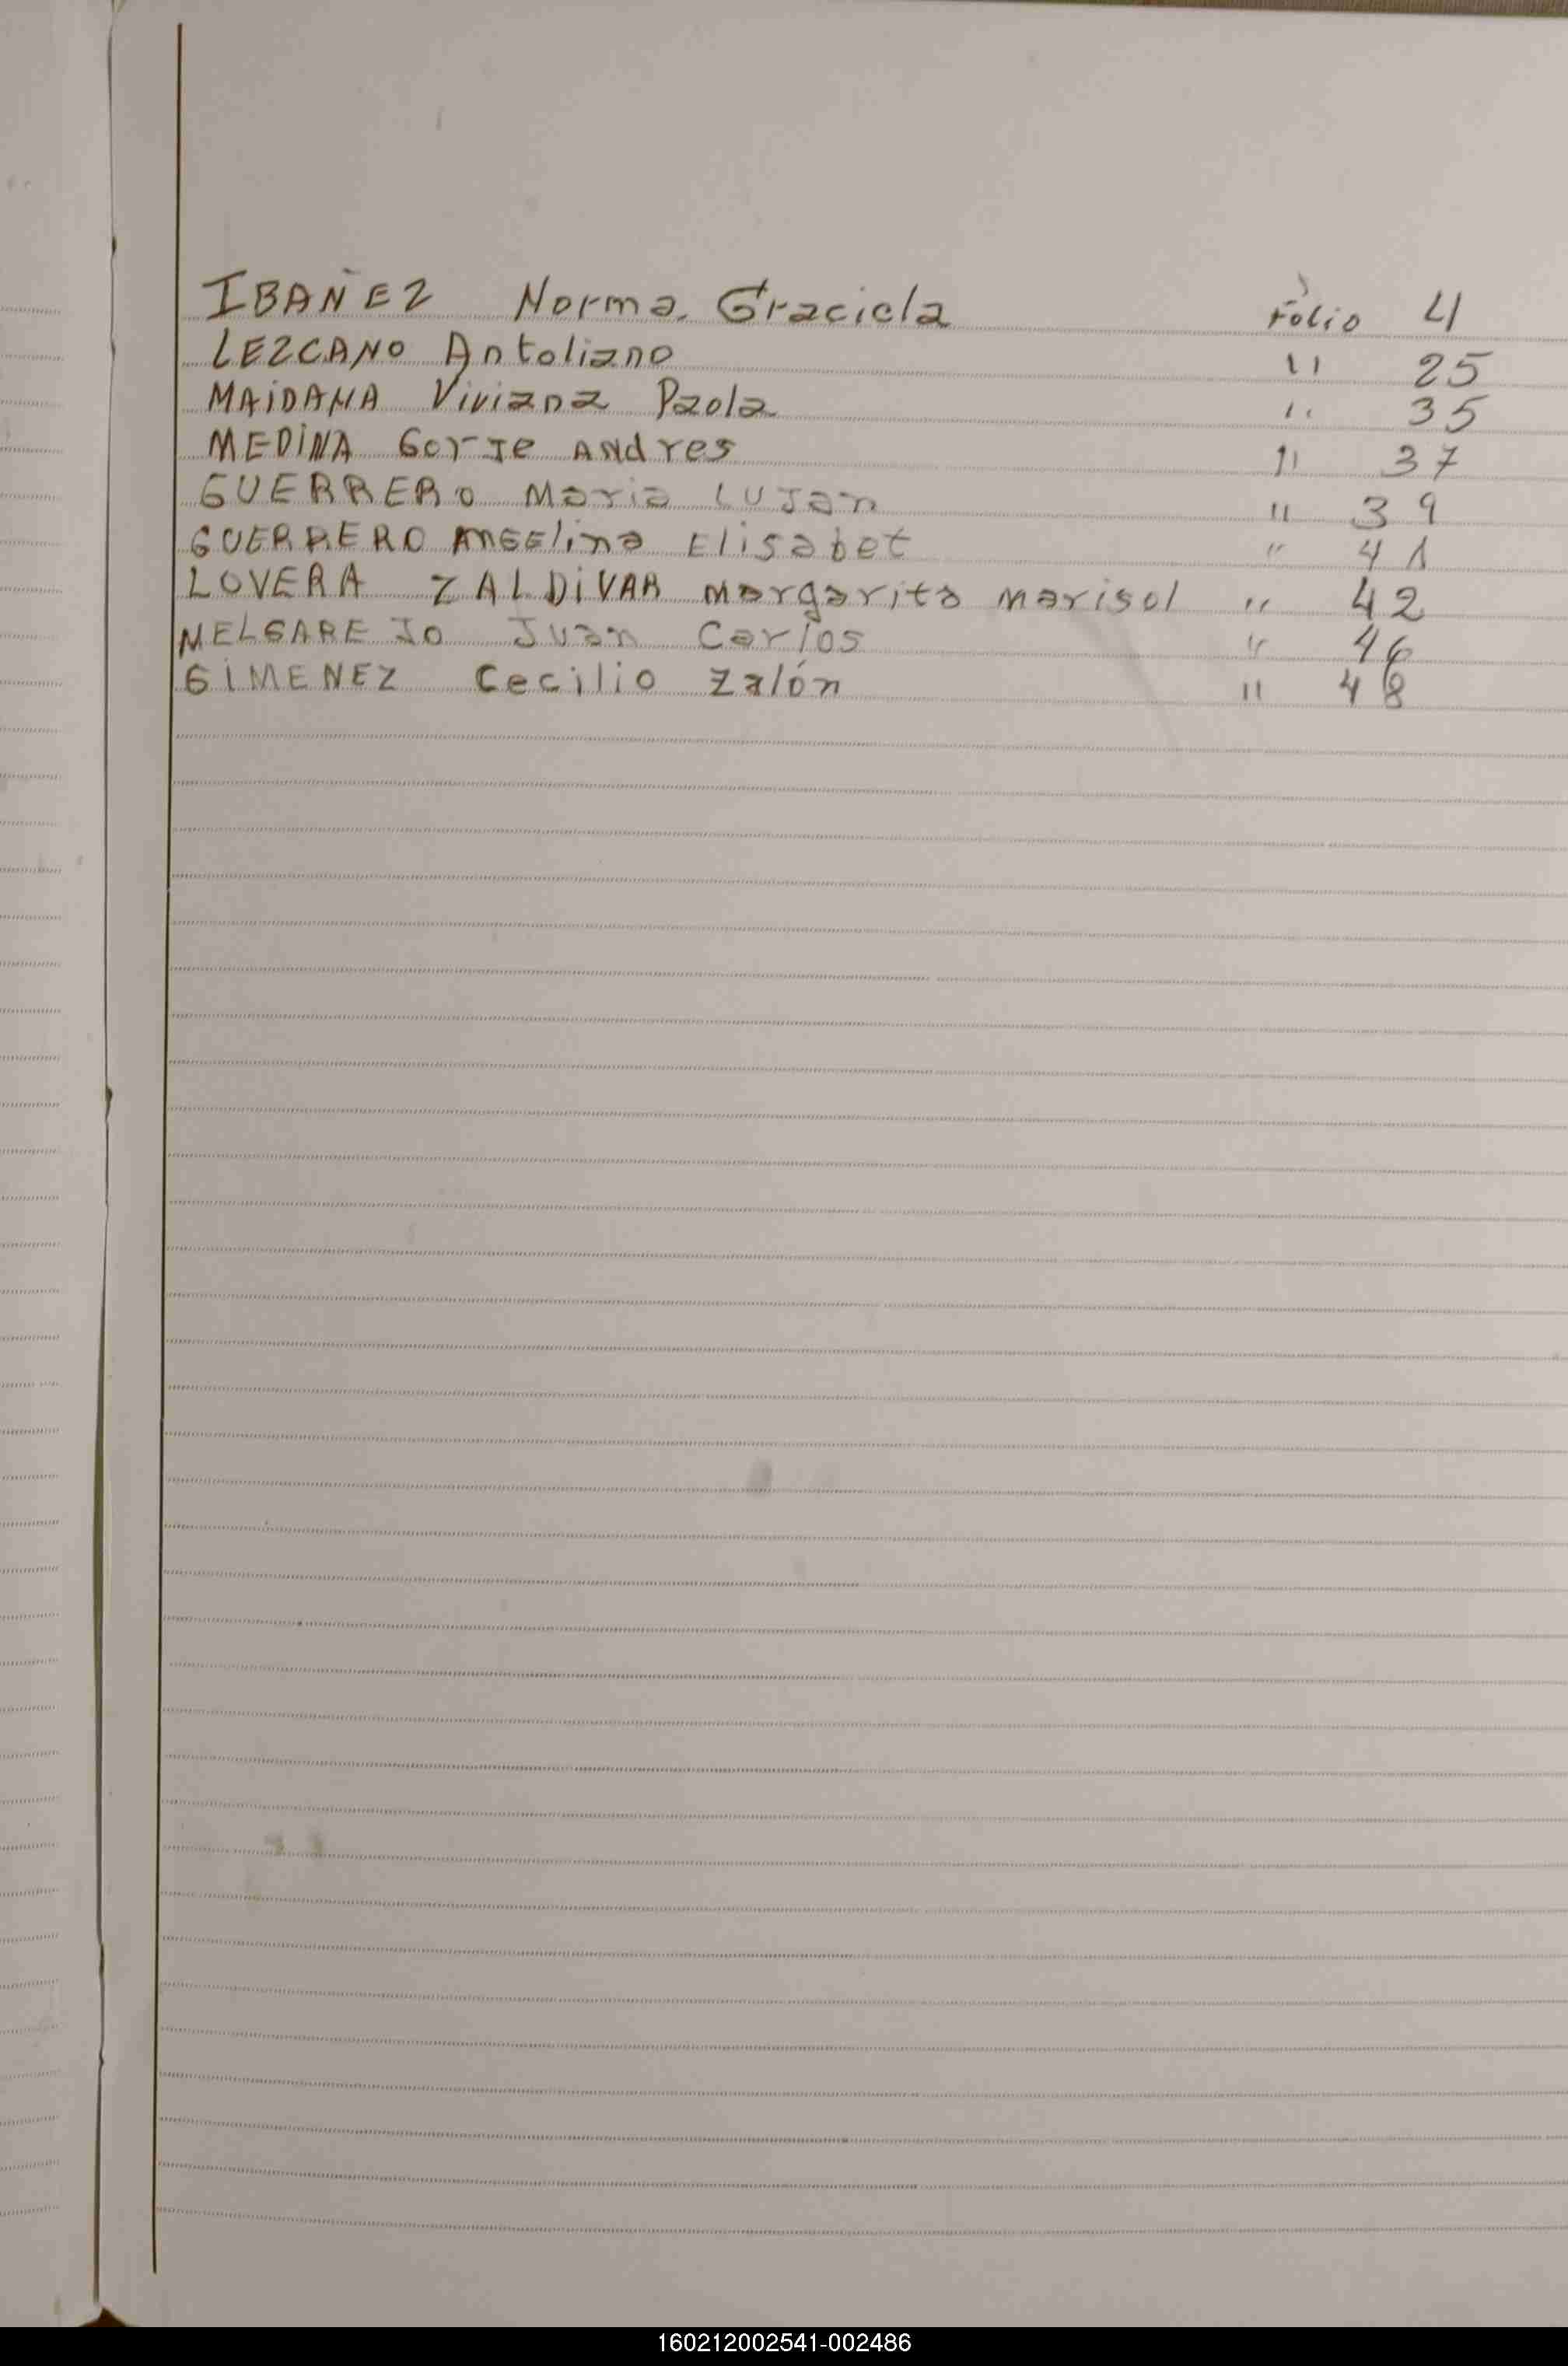 IBAÑEZ Norma Graciela Folio 4
LEZCANO Antoliano " 25
MAiDANA Viviana Paola " 35
MEDiNA GorJe ANdres " 37
GUERRERO Maria LUJan " 39
GUERRERO ANGElina Elisabet " 41
LOVERA ZALDiVAR Margarita marisol " 42
MELGAREJO JUan Carlos " 46
GiMENEZ Cecilio Zalón " 48
160212002541-002486